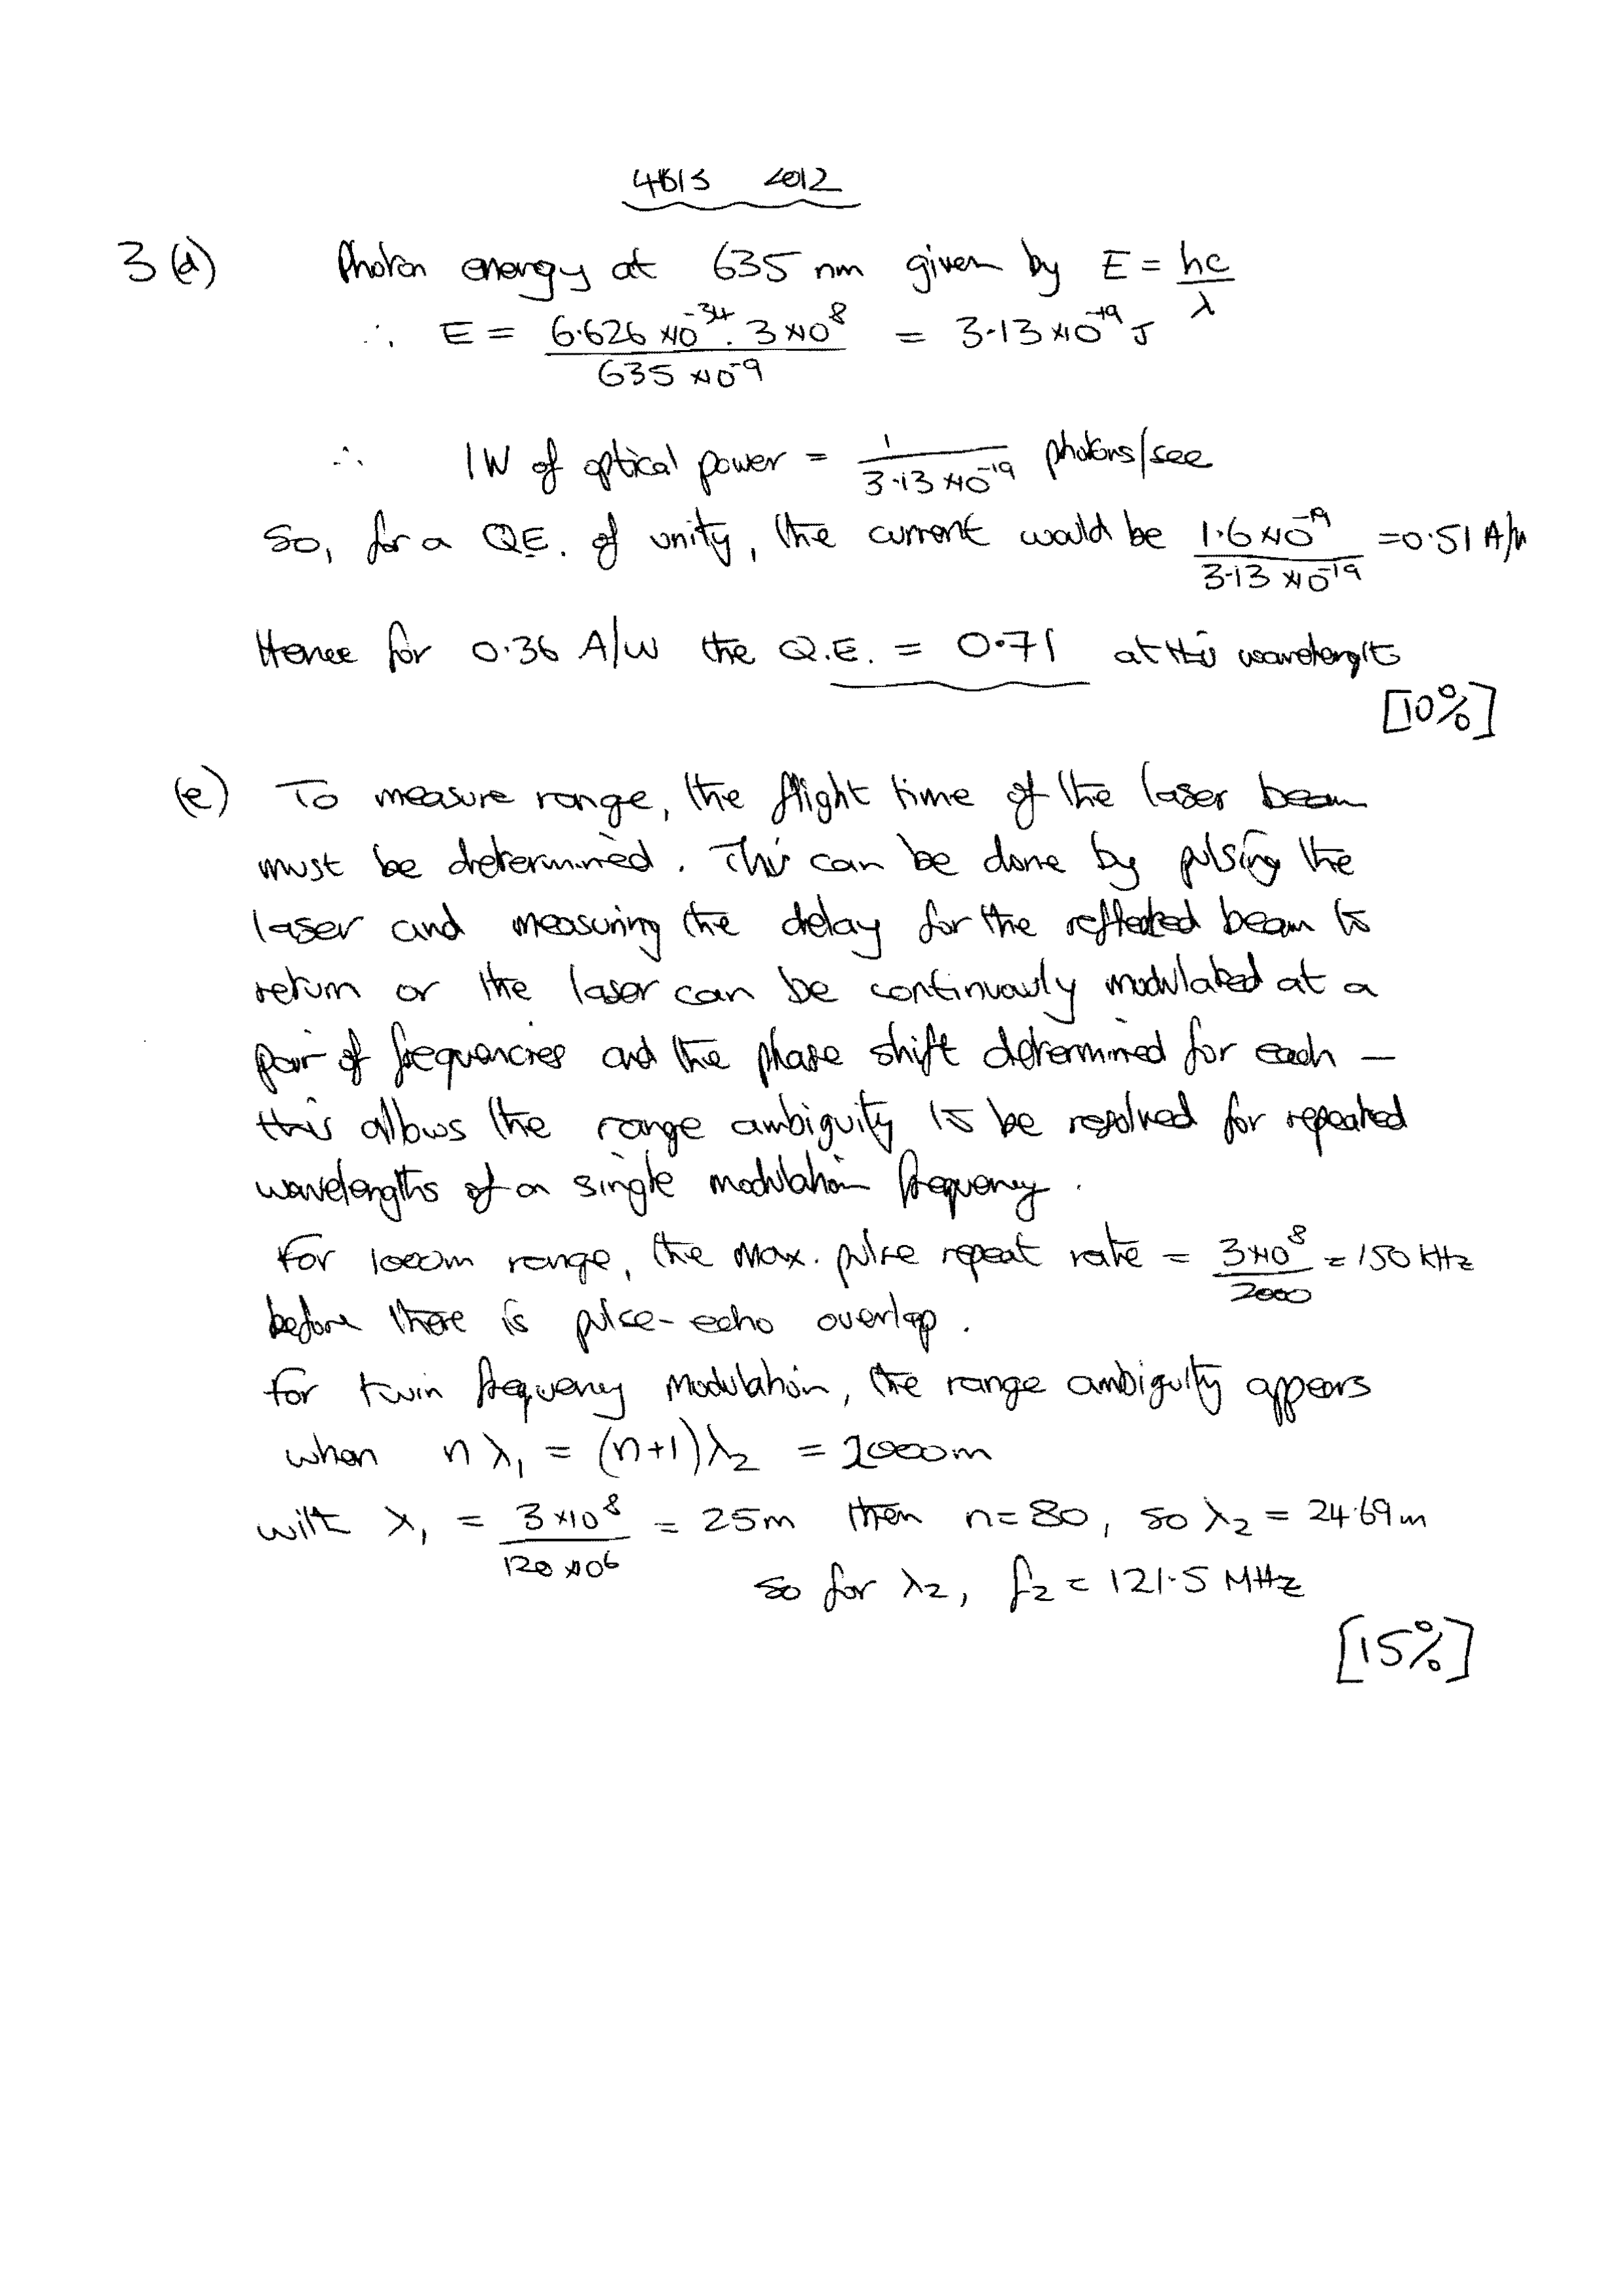 4B13 2012
3(d) Photon energy at 635 nm given by E = hc/λ
∴ E = 6.626 x10^-34 . 3 x10^8 / 635 x10^-9 = 3.13 x10^-19 J
∴ 1W of optical power = 1 / 3.13 x10^-19 photons/sec
So, for a QE. of unity, the current would be 1.6 x10^-19 / 3.13 x10^-19 = 0.51 A/W
Hence for 0.36 A/W the Q.E. = 0.71 at this wavelength
[10%]
(e) To measure range, the flight time of the laser beam
must be determined. This can be done by pulsing the
laser and measuring the delay for the reflected beam to
return or the laser can be continuously modulated at a
pair of frequencies and the phase shift determined for each –
this allows the range ambiguity to be resolved for repeated
wavelengths of a single modulation frequency.
For 1000m range, the max. pulse repeat rate = 3x10^8 / 2000 = 150 kHz
before there is pulse-echo overlap.
For twin frequency modulation, the range ambiguity appears
when nλ₁ = (n+1)λ₂ = 2000m
with λ₁ = 3 x10^8 / 120 x10^6 = 25m then n=80, so λ₂ = 24.69m
so for λ₂, f₂ = 121.5 MHz
[15%]